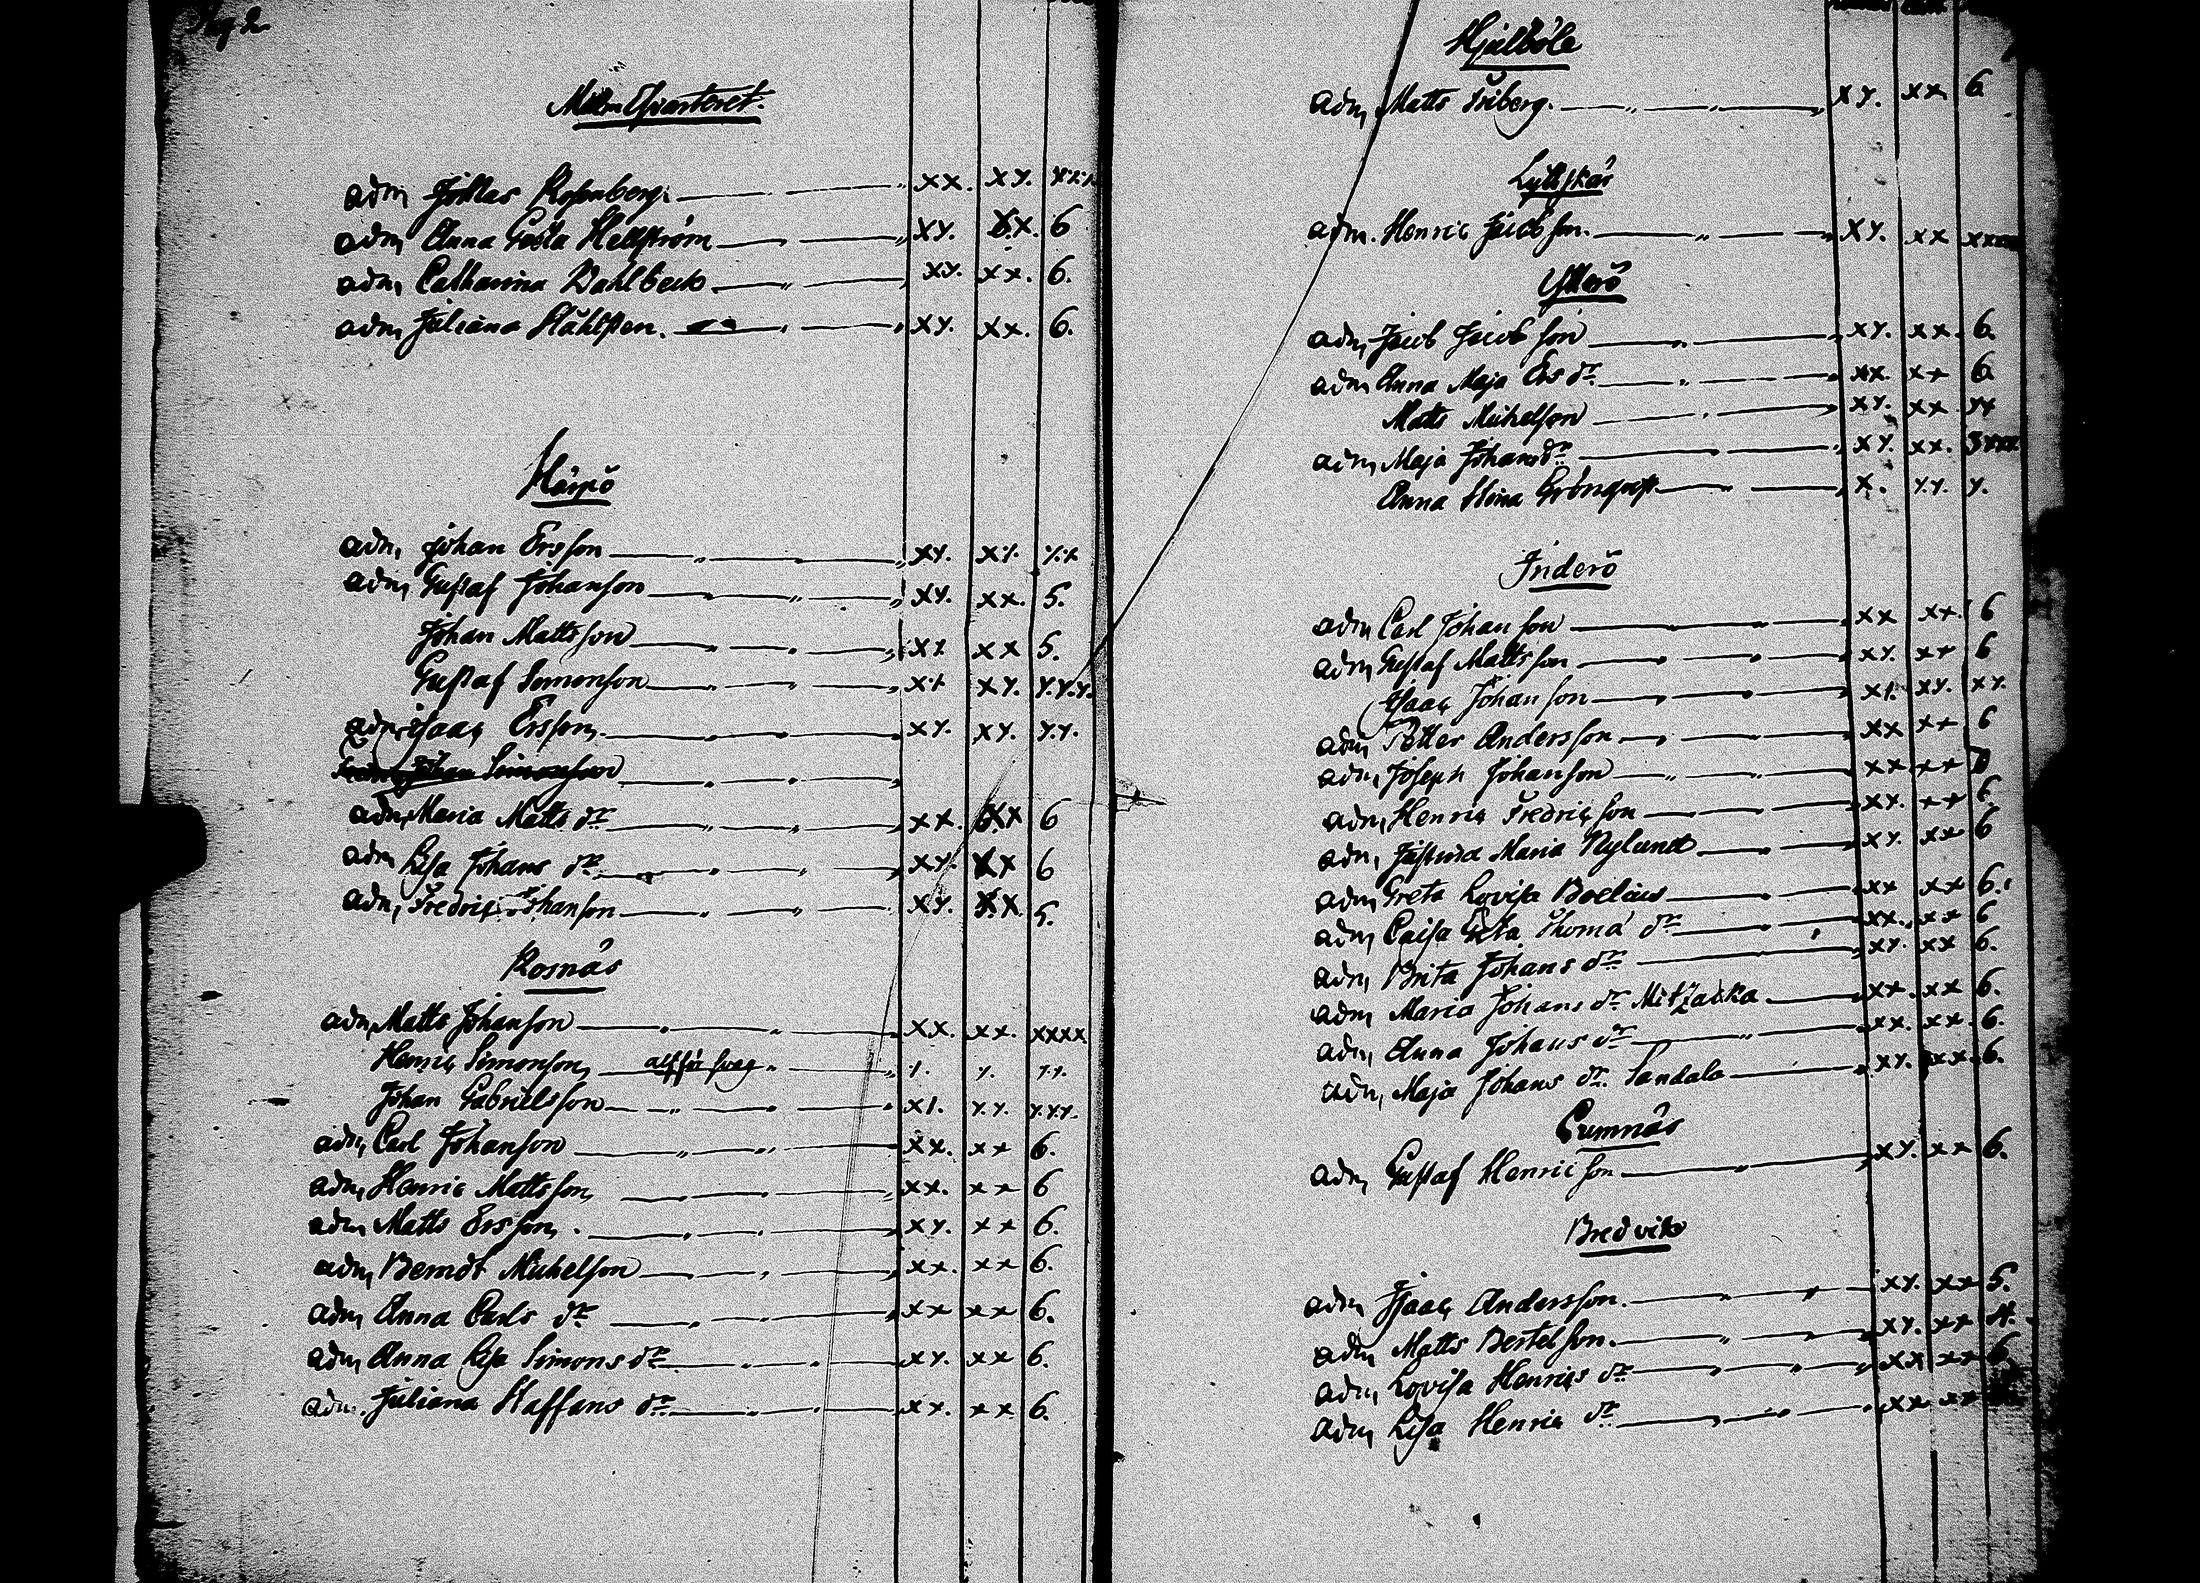 Pag. 2
Qvarteret.
adm Rosenberg xx. xy.
adm Anna Greta Hellström xy. xx. 6
adm Catharina Dahlbeck xy. xx. 6.
adm Juliana Ståhlsten. xy. xx. 6.
adm Johan Ersson xy. xy.
adm Gustaf Johanson xy. xx. 5.
Johan Mattsson xx 5.
Gustaf Simonson xy. y.y.y.
adm Isaac Ersson xy. xy. y.y.
Johan Simonsson
adm Maria Matts dr xx. xx 6
adm Lisa Johans dr xy. xx 6
adm Fredric Johanson xy. xx. 5.
Rosnäs
adm Matts Johanson xx. xx. xxxx
Henric Simonson y.
Johan Gabrielsson y.y. y.y.y.
adm Carl Johanson xx. xx 6.
adm Henric Mattsson xx. xx 6
adm Matts Ersson xy. xx 6.
adm Berndt Michelson xx. xx 6.
adm Anna Carls dr xx xx 6.
adm Anna Lisa Simons dr xy. xx 6.
adm. Juliana Staffans dr xy. xx 6.
Hjälböle
adm Matts Friberg. xy. xx 6
adm. Henric Jacobson. xy. xx
Ytterö
adm Jacob Jacobson xy. xx. 6.
adm Anna Maja Ers dr xx. xx 6
Matts Michelson xy. xx. yx
adm Maja Johans dr xy. xx.
Anna Stina Grönqvist x. y.y. y.
Inderö
adm Carl Johanson xx xx. 6
adm Gustaf Mattsson xy. xx 6
Isaac Johanson xy. xy.
adm Petter Andersson xx xx 6
adm Joseph Johanson xx. xx
adm Henric Fredricson xy. xx 6.
adm Justina Maria Nylund xy. xx 6
adm Greta Lovisa Boelius xx xx 6.
adm Caisa Greta Thoma dr xx. xx 6
adm Brita Johans dr xy. xx 6.
adm Maria Johans dr xx. xx 6.
adm Anna Johans dr xx. xx. 6.
adm Maja Johans dr Sandala xy. xx. 6.
adm Gustaf Henricson xy. xx 6.
Bredvik
adm Isaac Andersson. xy. xx 5.
adm Matts Bertelson. xy. xx 4.
adm Lovisa Henrics dr xx xx 6
adm Lisa Henric dr xx. xx